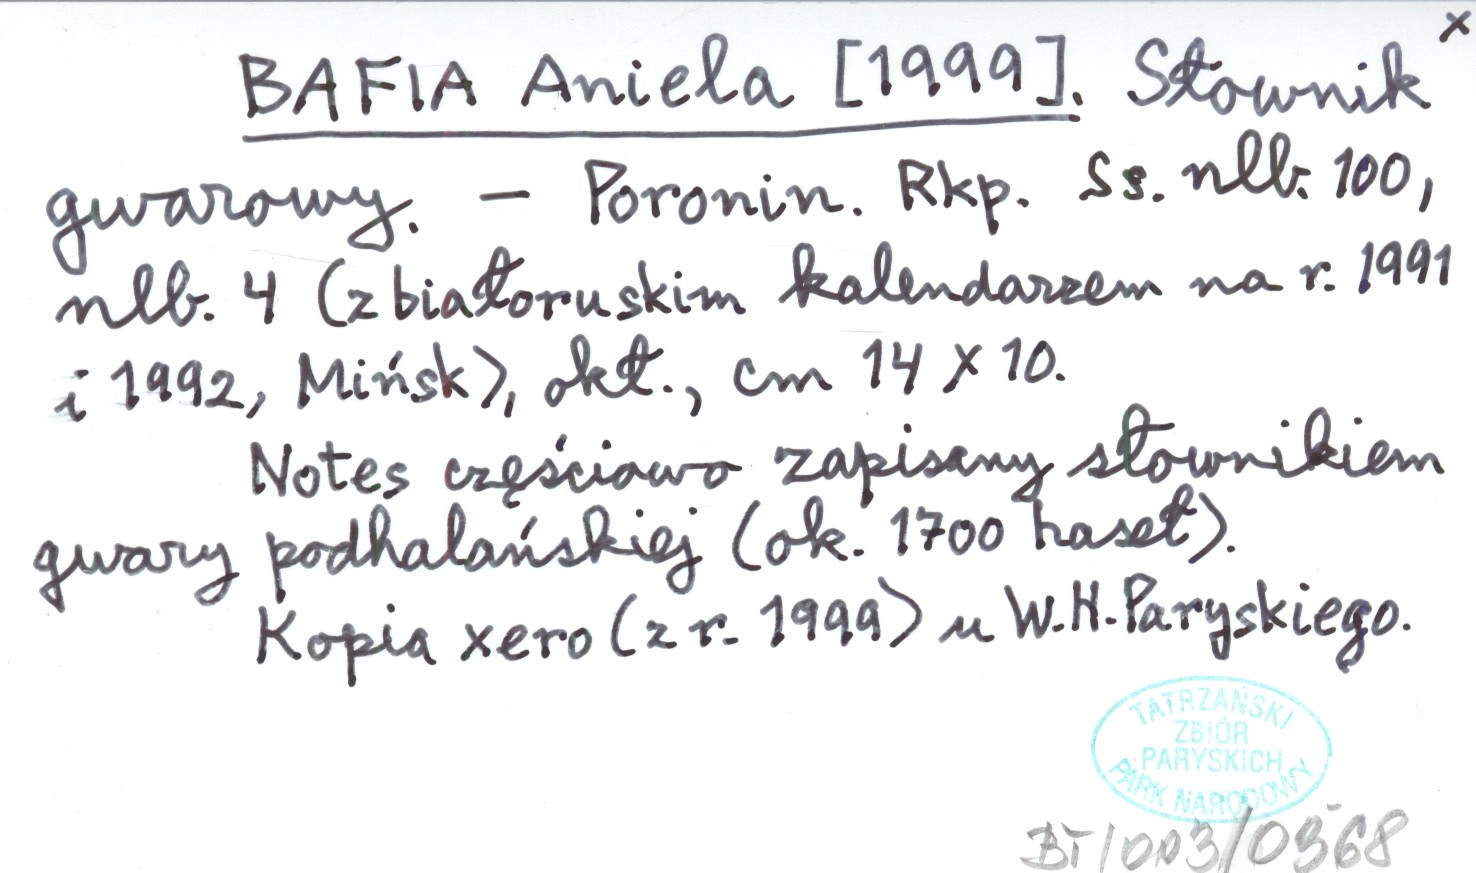 x
BAFIA Aniela [1999]. Słownik
gwarowy. – Poronin. Rkp. Ss. nlb. 100,
nlb. 4 (z białoruskim kalendarzem na r. 1991
i 1992, Mińsk), okł., cm 14 x 10.
Notes częściowo zapisany słownikiem
gwary podhalańskiej (ok. 1700 haseł).
Kopia xero (z r. 1999) u W.H. Paryskiego.
TATRZAŃSKI
ZBIÓR
PARYSKICH
PARK NARODOWY
BT/003/0368